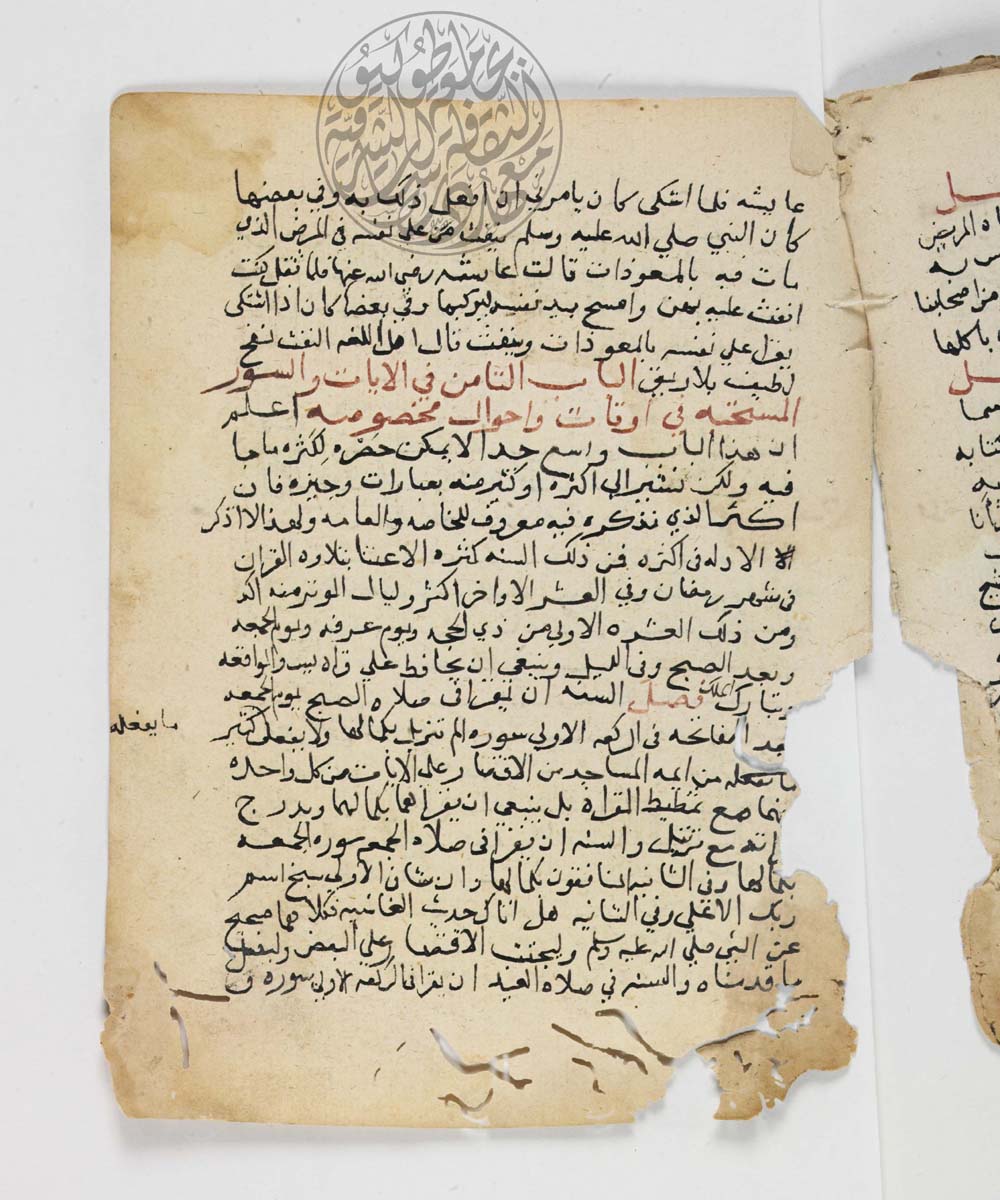 عايشه فلما اشتكى كان يامرني ان افعل ذلك به وفي بعضها
كان النبي صلي الله عليه وسلم ينفث على نفسه في المرض الذي
مات فيه بالمعوذات قالت عايشه رضي الله عنها فلما ثقل كنت
انفث عليه بهن وامسح بيد نفسه لبركتها وفي بعضها كان اذا اشتكى
يقرا علي نفسه بالمعوذات وينفث قال اهل اللغه النفث نفخ
لطيف بلا ريق الباب الثامن في الايات والسور
المستحبه في اوقات واحوال مخصوصه اعلم
ان هذا الباب واسع جدا لا يمكن حصره لكثره ما جا
فيه ولكن نشير الي اكثره او كثير منه بعبارات وجيزه فان
اكثر الذي نذكره فيه معروف للخاصه والعامه ولهذا لا اذكر
الادله في اكثره فمن ذلك السنه كثره الاعتنا بتلاوه القران
في شهر رمضان وفي العشر الاواخر اكثر وليال الوتر منه اكد
ومن ذلك العشره الاولي من ذي الحجه ويوم عرفه ويوم الجمعه
وبعد الصبح وفي الليل وينبغي ان يحافظ علي قراه يس والواقعه
وتبارك الملك فصل السنه ان يقرا في صلاه الصبح يوم الجمعه
بعد الفاتحه في الركعه الاولي سوره الم تنزيل بكمالها ولا يفعل كثير
ما يفعله
ما يفعله من ايمه المساجد من الاقتصار على الايات من كل واحده
منهما مع تمطيط القراه بل ينبغي ان يقراهما بكمالهما ويدرج
قراته مع ترتيل والسنه ان يقرا في صلاه الجمعه سوره الجمعه
بكمالها وفي الثانيه المنافقون بكمالها وان شا في الاولي سبح اسم
ربك الاعلي وفي الثانيه هل اتاك حديث الغاشيه فكلاهما صحيح
عن النبي صلي الله عليه وسلم وليجتنب الاقتصار علي البعض وليفعل
ما قدمناه والسنه في صلاه العيد ان يقرا في الركعه الاولي سوره ق